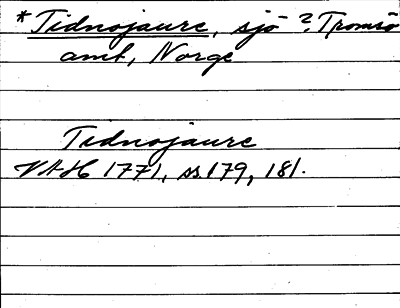 *Tidnojaure, sjö ? Tromsö
amt, Norge
Tidnojaure
VAH 1771, ss. 179, 181.